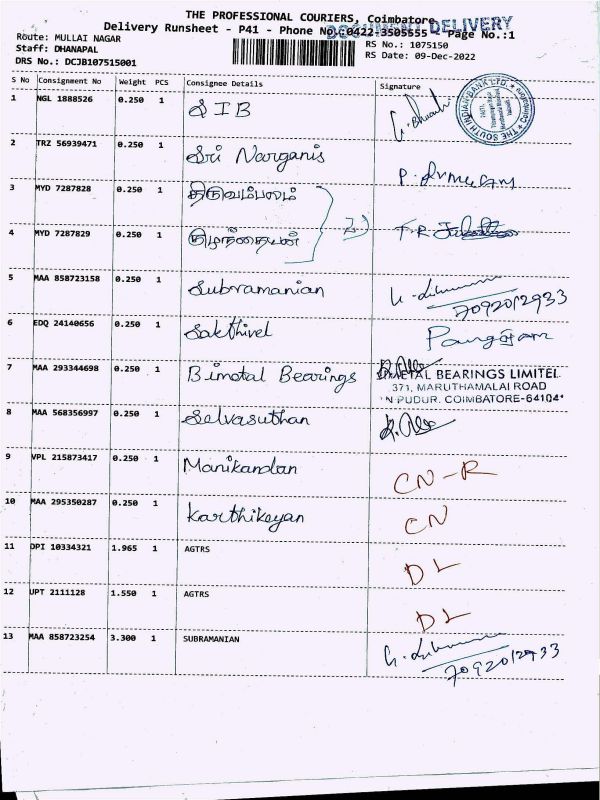 THE PROFESSIONAL COURIERS, Coimbatore
DOCUMENT DELIVERY
Delivery Runsheet - P41 - Phone No.:0422-3505555 Page No.:1
Route: MULLAI NAGAR RS No.: 1075150
Staff: DHANAPAL RS Date: 09-Dec-2022
DRS No.: DCJB107515001
S No Consignment No Weight PCS Consignee Details Signature
1 NGL 1888526 0.250 1 SIB
THE SOUTH INDIAN BANK LTD.
2 TRZ 56939471 0.250 1 Sri Narganis
3 MYD 7287828 0.250 1 திருவம்பலம்
4 MYD 7287829 0.250 1 குழந்தையன்
5 MAA 858723158 0.250 1 Subramanian 7092012933
6 EDQ 24140656 0.250 1 Sakthivel
7 MAA 293344698 0.250 1 Bimetal Bearings BIMETAL BEARINGS LIMITED
371, MARUTHAMALAI ROAD
N PUDUR. COIMBATORE-64104
8 MAA 568356997 0.250 1 Selvasuthan
9 VPL 215873417 0.250 1 Manikandan CN-R
10 MAA 295350287 0.250 1 Karthikeyan CN
11 DPI 10334321 1.965 1 AGTRS DL
12 UPT 2111128 1.550 1 AGTRS DL
13 MAA 858723254 3.300 1 SUBRAMANIAN 7092012933